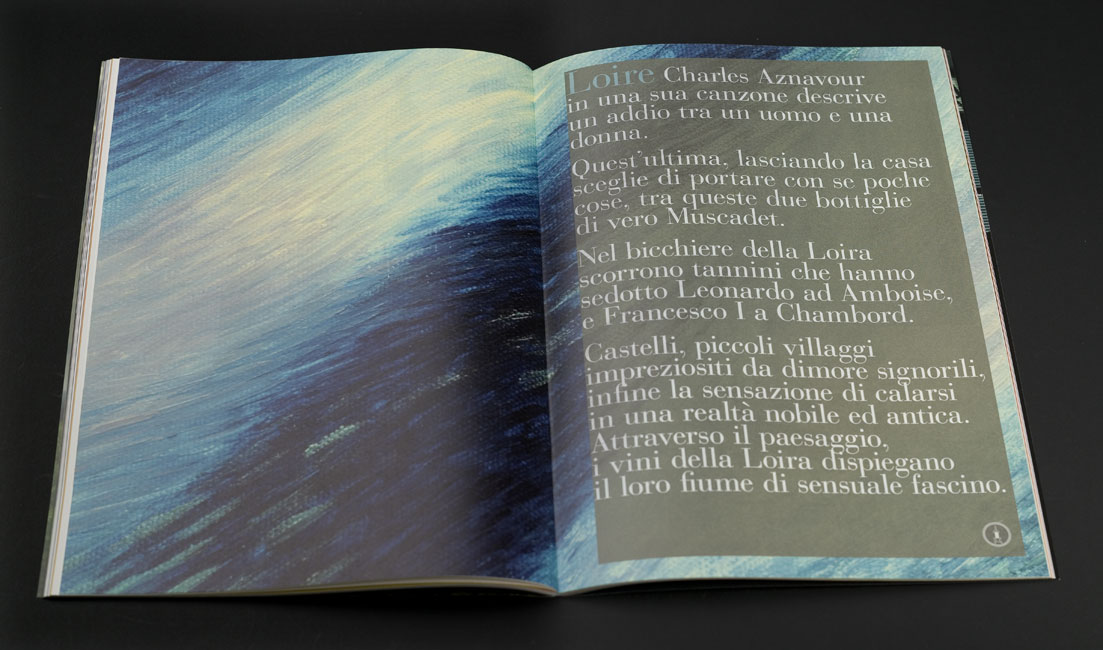 Loire Charles Aznavour
in una sua canzone descrive
un addio tra un uomo e una
donna.
Quest'ultima, lasciando la casa
sceglie di portare con se poche
cose, tra queste due bottiglie
di vero Muscadet.
Nel bicchiere della Loira
scorrono tannini che hanno
sedotto Leonardo ad Amboise,
e Francesco I a Chambord.
Castelli, piccoli villaggi
impreziositi da dimore signorili,
infine la sensazione di calarsi
in una realtà nobile ed antica.
Attraverso il paesaggio,
i vini della Loira dispiegano
il loro fiume di sensuale fascino.